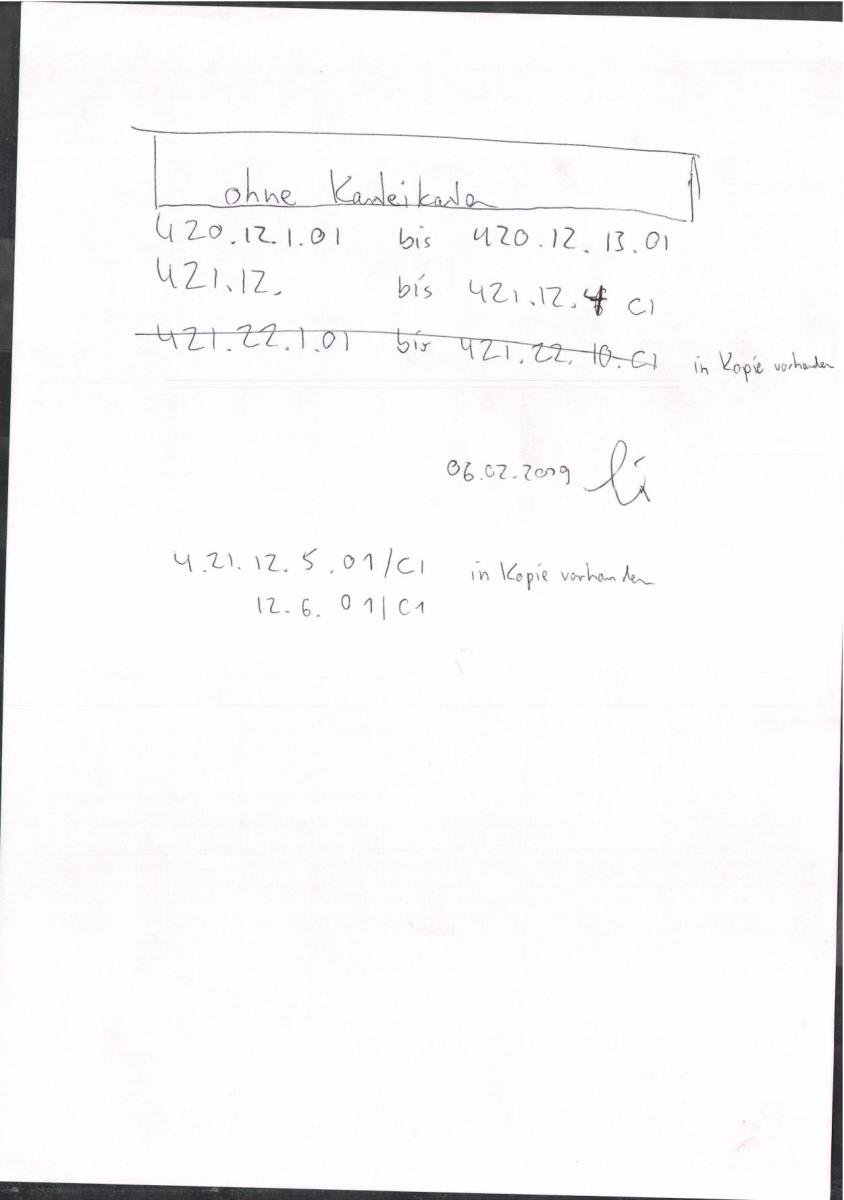 ohne Karteikarten
420.12.1.01 bis 420.12.13.01
421.12. bis 421.12.4 C1
421.22.1.01 bis 421.22.10.C1 in Kopie vorhanden
06.02.2009
4.21.12.5.01/C1 in Kopie vorhanden
12.6.01/C1